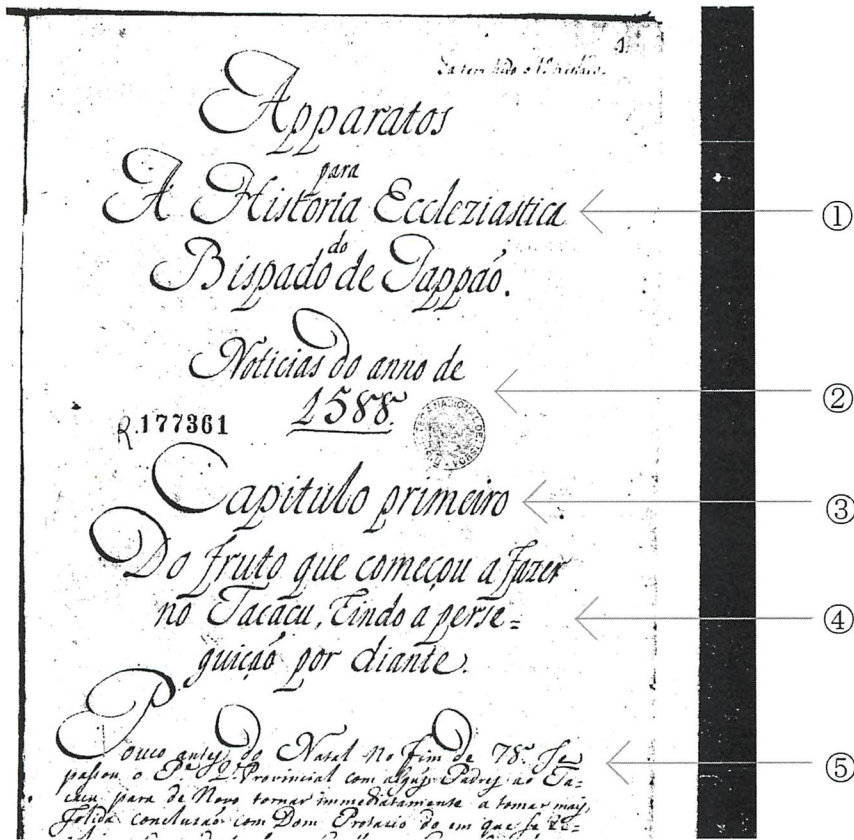 1.
Ja tem lido o
Apparatos
para
A Historia Eccleziastica
do
Bispado de Jappaõ.
Noticias do anno de
1588.
R.177361
Capitulo primeiro
Do fruto que começou a fazer
no Tacacu, Tindo a perse=
guiçaõ por diante.
Pouco antes do Natal no fim de 78. se
passou o Pe. Provincial com alguns Padres ao Ta=
cacu para de Novo tornar immediatamente a tomar mays
solida concluzaõ com Dom Protacio do em que se
①
②
③
④
⑤